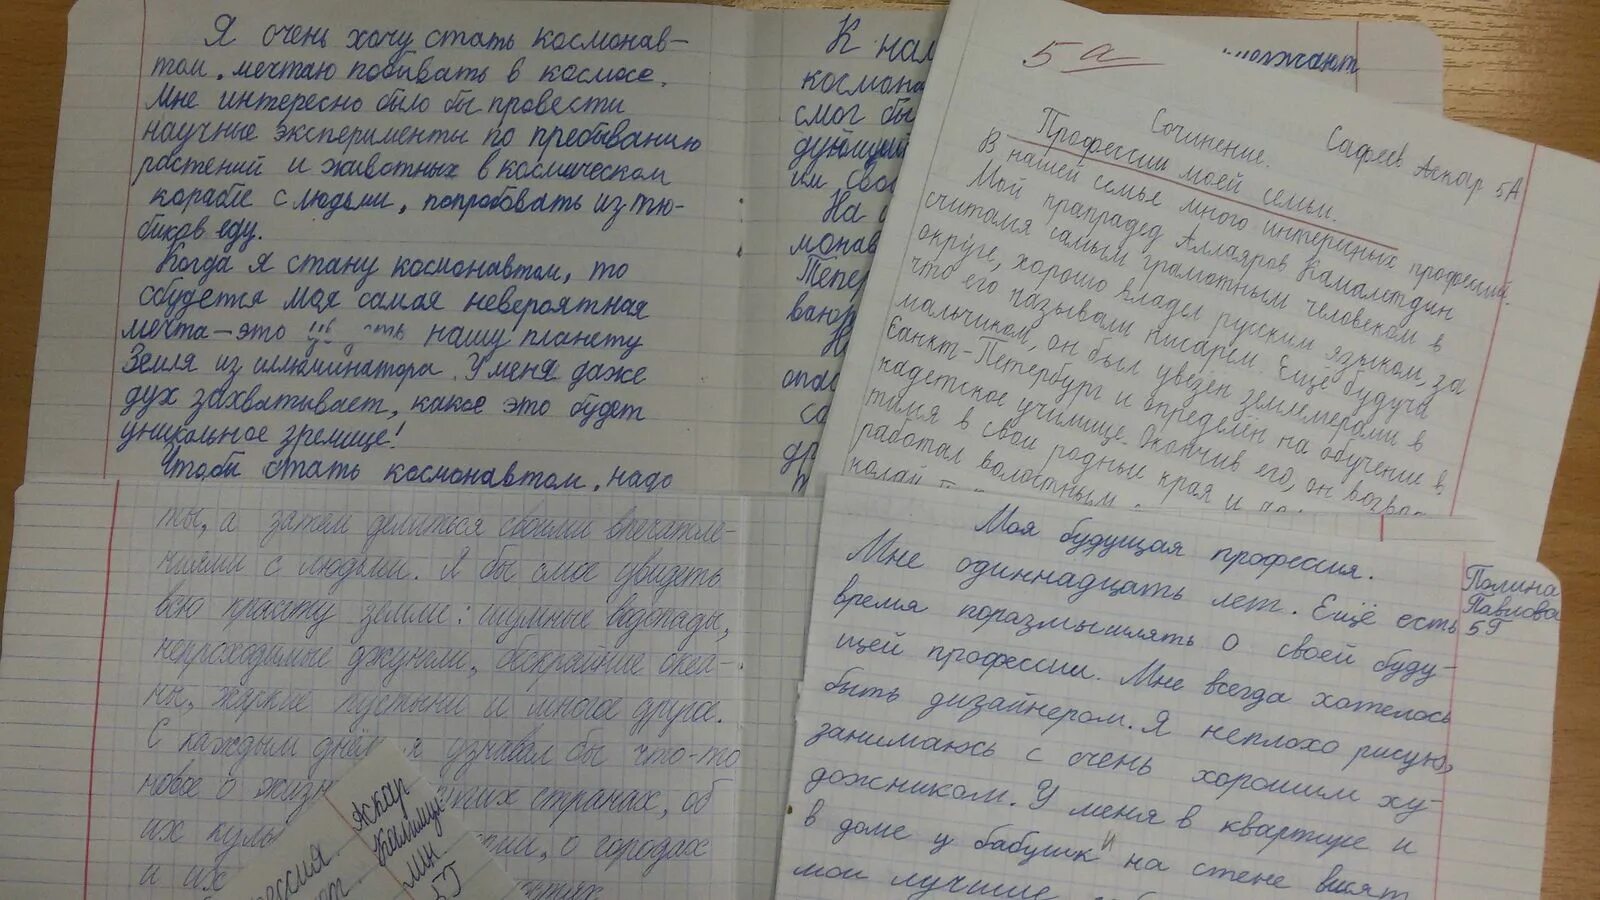 Я очень хочу стать космонав-
том, мечтаю побывать в космосе.
Мне интересно было бы провести
научные эксперименты по пребыванию
растений и животных в космическом
корабле с людьми, попробовать из тю-
биков еду.
Когда я стану космонавтом, то
сбудется моя самая невероятная
мечта – это нашу планету
Земля из иллюминатора. У меня даже
дух захватывает, какое это будет
уникальное зрелище!
Чтобы стать космонавтом, надо
К нам
смог бы
дующий
На
Тепер
5 а
Сочинение. Сафеев Аскар 5А
Профессии моей семьи.
В нашей семье много интересных профессий.
Мой прапрадед Аллаяров Камалетдин
считался самым грамотным человеком в
округе, хорошо владел русским языком, за
что его называли писарем. Ещё будуча
мальчиком, он был увезён землемерами в
Санкт-Петербург и определён на обучение в
кадетское училище. Окончив его, он возвра-
тился в свои родные края и
работал волостным
ты, а затем делиться своими впечатле-
ниями с людьми. Я бы смог увидеть
всю красоту земли: шумные водопады,
непроходимые джунгли, бескрайние океа-
ны, жаркие пустыни и многое другое.
С каждым днём я узнавал бы что-то
новое о жизн странах, об
их куль о городах
и их
Аскар
5Г
Моя будущая профессия.
Полина
Павлова
5Г
Мне одиннадцать лет. Ещё есть
время поразмышлять о своей буду-
щей профессии. Мне всегда хотелось
быть дизайнером. Я неплохо рисую,
занимаюсь с очень хорошим ху-
дожником. У меня в квартире и
в доме у бабушки на стене висят
мои лучшие